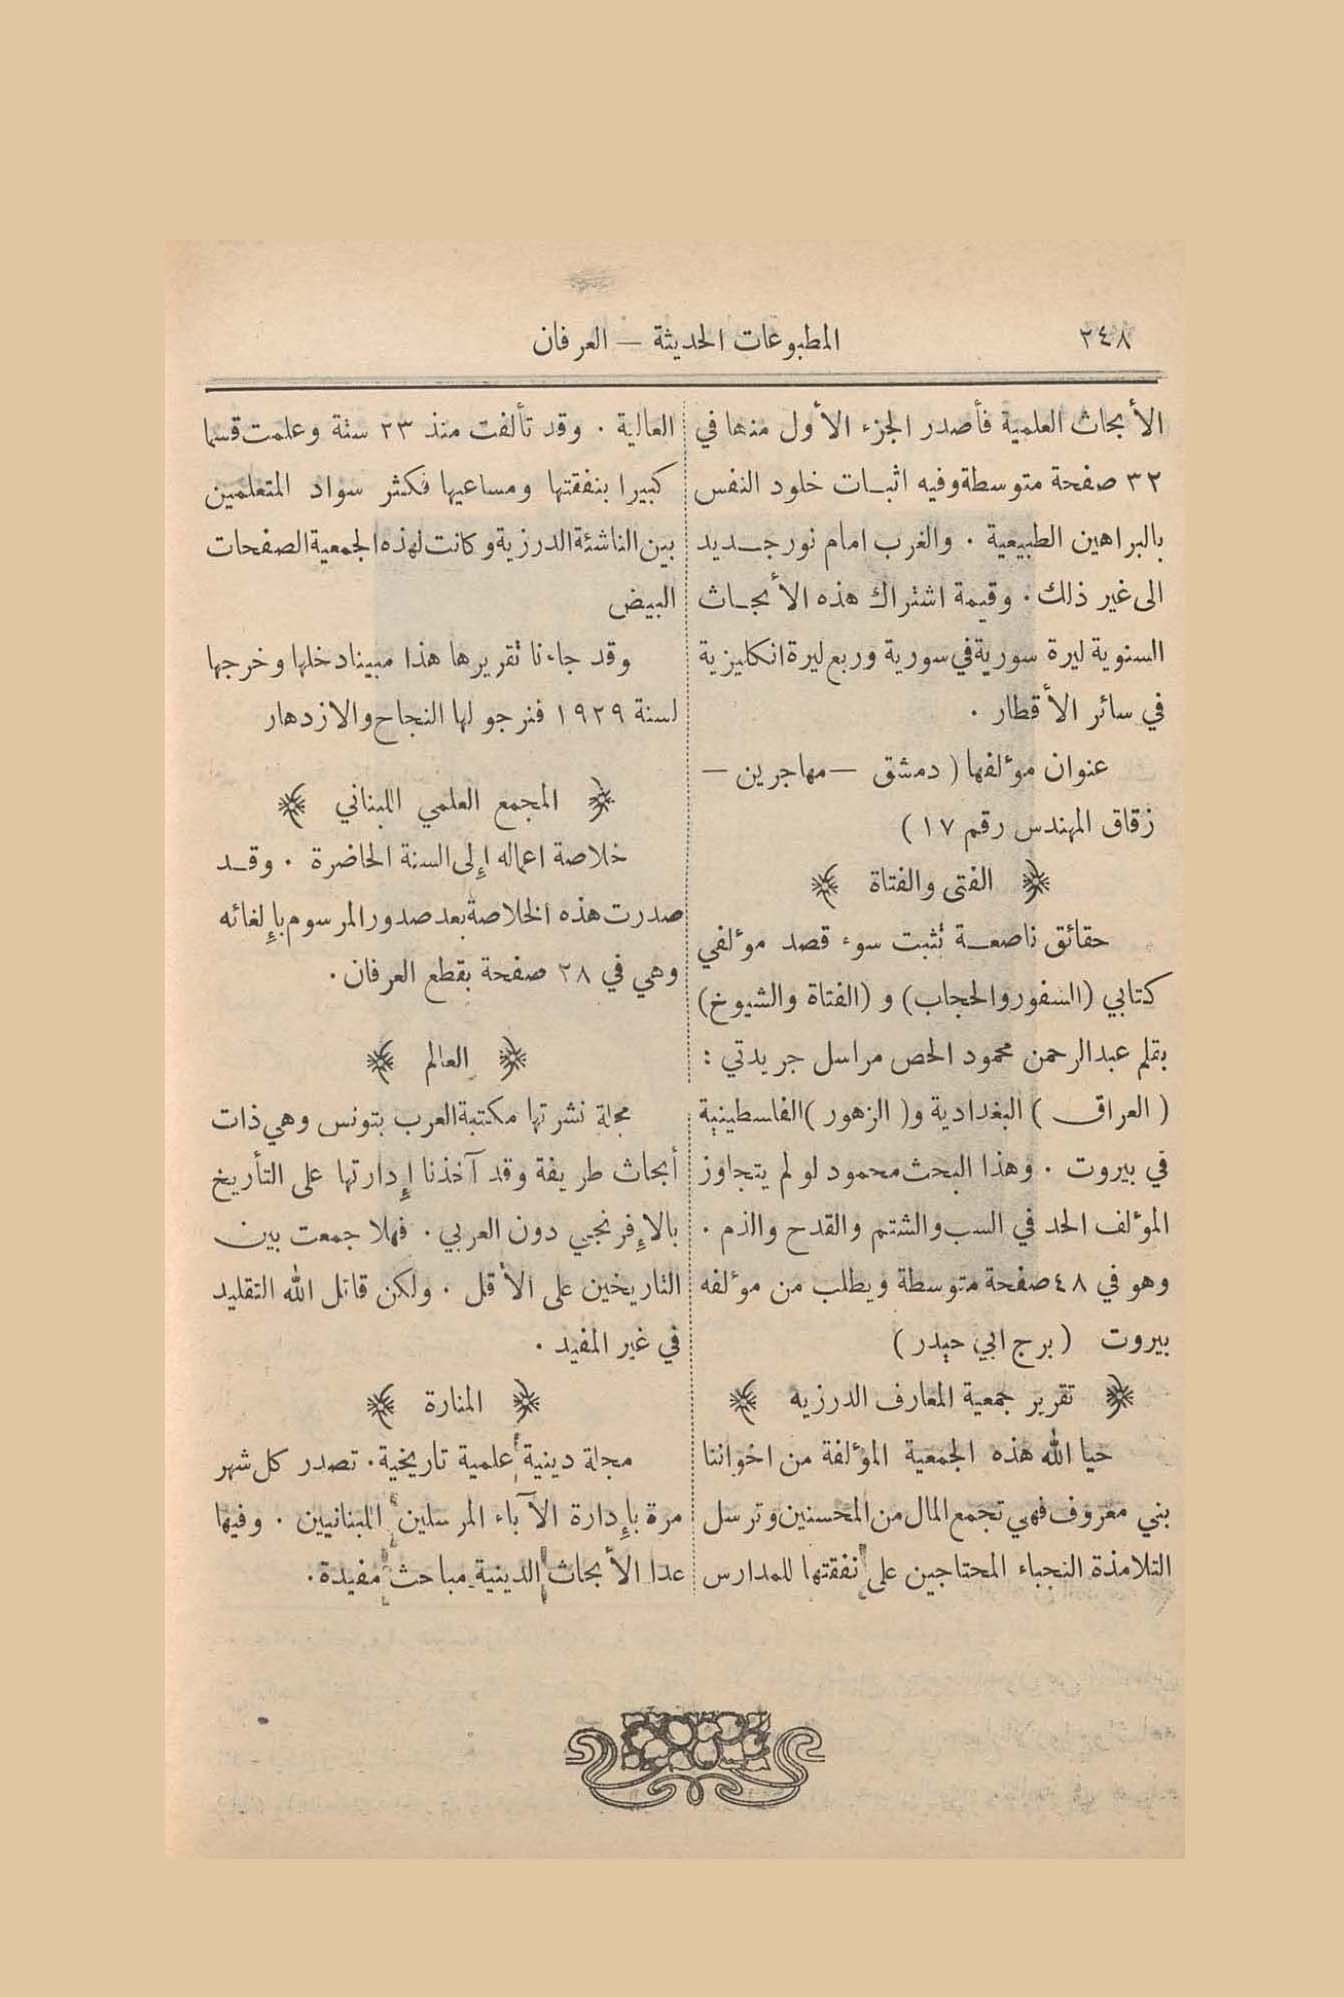 ٢٤٨
المطبوعات الحديثة — العرفان
الأبحاث العلمية فأصدر الجزء الأول منها في
٣٢ صفحة متوسطة وفيه اثبات خلود النفس
بالبراهين الطبيعية . والغرب امام نور جديد
الى غير ذلك . وقيمة اشتراك هذه الأبحاث
السنوية ليرة سورية في سورية وربع ليرة انكليزية
في سائر الأقطار .
عنوان مؤلفها ( دمشق — مهاجرين —
زقاق المهندس رقم ١٧ )
الفتى والفتاة
حقائق ناصعة تثبت سوء قصد مؤلفي
كتابي (السفور والحجاب) و (الفتاة والشيوخ)
بقلم عبدالرحمن محمود الحص مراسل جريدتي :
( العراق ) البغدادية و( الزهور ) الفلسطينية
في بيروت . وهذا البحث محمود لو لم يتجاوز
المؤلف الحد في السب والشتم والقدح والذم .
وهو في ٤٨ صفحة متوسطة ويطلب من مؤلفه
بيروت ( برج ابي حيدر )
تقرير جمعية المعارف الدرزيه
حيا الله هذه الجمعية المؤلفة من اخواننا
بني معروف فهي تجمع المال من المحسنين وترسل
التلامذة النجباء المحتاجين على نفقتها للمدارس
العالية . وقد تألفت منذ ٢٣ سنة وعلمت قسما
كبيرا بنفقتها ومساعيها فكثر سواد المتعلمين
بين الناشئة الدرزية وكانت لهذه الجمعية الصفحات
البيض
وقد جاءنا تقريرها هذا مبينا دخلها وخرجها
لسنة ١٩٢٩ فنرجو لها النجاح والازدهار
المجمع العلمي اللبناني
خلاصة اعماله إلى السنة الحاضرة . وقد
صدرت هذه الخلاصة بعد صدور المرسوم بإلغائه
وهي في ٢٨ صفحة بقطع العرفان .
العالم
مجلة نشرتها مكتبة العرب بتونس وهي ذات
أبحاث طريفة وقد آخذنا إدارتها على التأريخ
بالإفرنجي دون العربي . فهلا جمعت بين
التاريخين على الأقل . ولكن قاتل الله التقليد
في غير المفيد .
المنارة
مجلة دينية علمية تاريخية . تصدر كل شهر
مرة بإدارة الآباء المرسلين اللبنانيين . وفيها
عدا الأبحاث الدينية مباحث مفيدة .